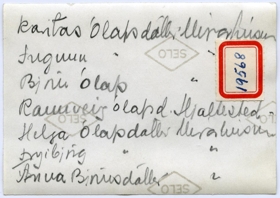 Karitas Ólapsdóttir Merarhúsum
Ingunn "
Björn Ólap "
Rannveig Ólapsd. Hjallsted
Helga Ólapsdóttir Merarhúsum
Ingibjörg " "
Anna Björnsdóttir "
SELO
SELO
SELO
19568